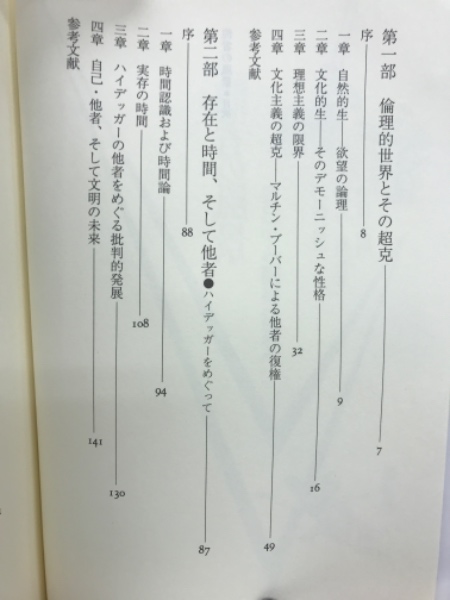 第一部　倫理的世界とその超克 7
序 8
一章　自然的生——欲望の論理 9
二章　文化的生——そのデモーニッシュな性格 16
三章　理想主義の限界 32
四章　文化主義の超克——マルチン・ブーバーによる他者の復権 49
参考文献
第二部　存在と時間、そして他者●ハイデッガーをめぐって 87
序 88
一章　時間認識および時間論 94
二章　実存の時間 108
三章　ハイデッガーの他者をめぐる批判的発展 130
四章　自己・他者、そして文明の未来 141
参考文献